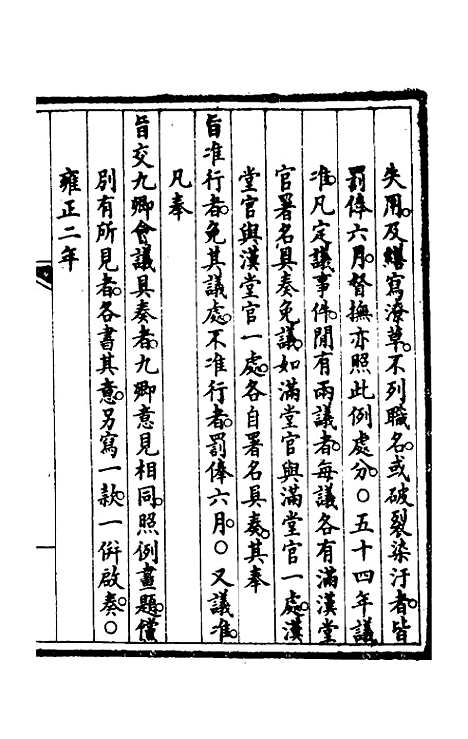 失用。及繕寫潦草。不列職名。或破裂染汙者。皆
罰俸六月。督撫亦照此例處分。○五十四年議
准。凡定議事件。閒有兩議者。每議各有滿漢堂
官署名具奏免議。如滿堂官與滿堂官一處。漢
堂官與漢堂官一處。各自署名具奏。其奉
旨准行者。免其議處。不准行者。罰俸六月。○又議准。
凡奉
旨交九卿會議具奏者。九卿意見相同。照例畫題。儻
別有所見者。各書其意。另寫一款。一倂啟奏。○
雍正二年